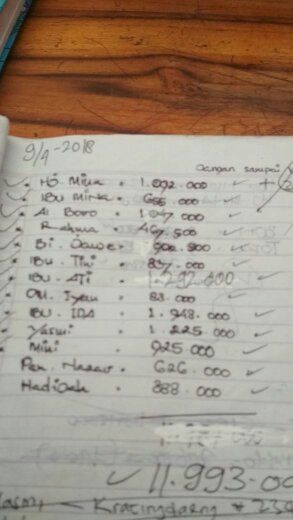 9/4-2018
Jangan sampai
HO. Mina • 1.092.000 ✓ +
IBU Mirna • 655.000 ✓
Al Boro • 1.047.000 ✓
Rahma • 467.500 ✓
Bi. • 900.500 ✓
Ibu. Tini • 837.000 ✓
IBU. ATI • 1.292.000 ✓
OM. Iyan • 83.000 ✓
IBU. IDA • 1.948.000 ✓
Yasmi • 1.225.000 ✓
Mini • 925.000 ✓
Pak • 626.000 ✓
Hadijah • 888.000 ✓
✓ 11.993.00
Kratingdaeng